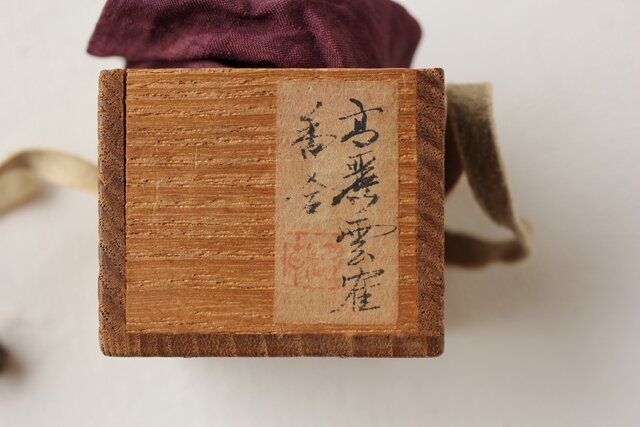 高麗雲鶴
香合